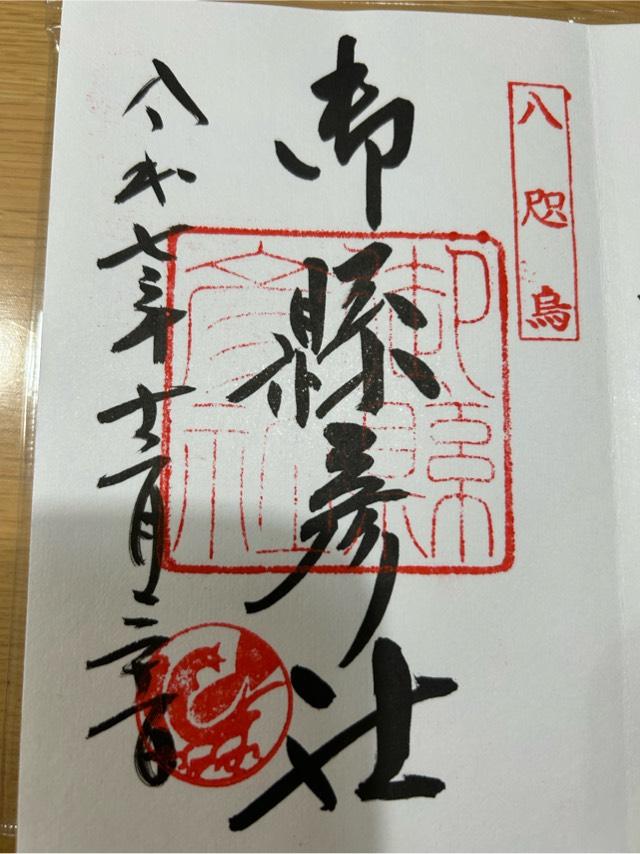 八咫烏
御縣彦社
御縣彦社
令和七年十二月二十一日